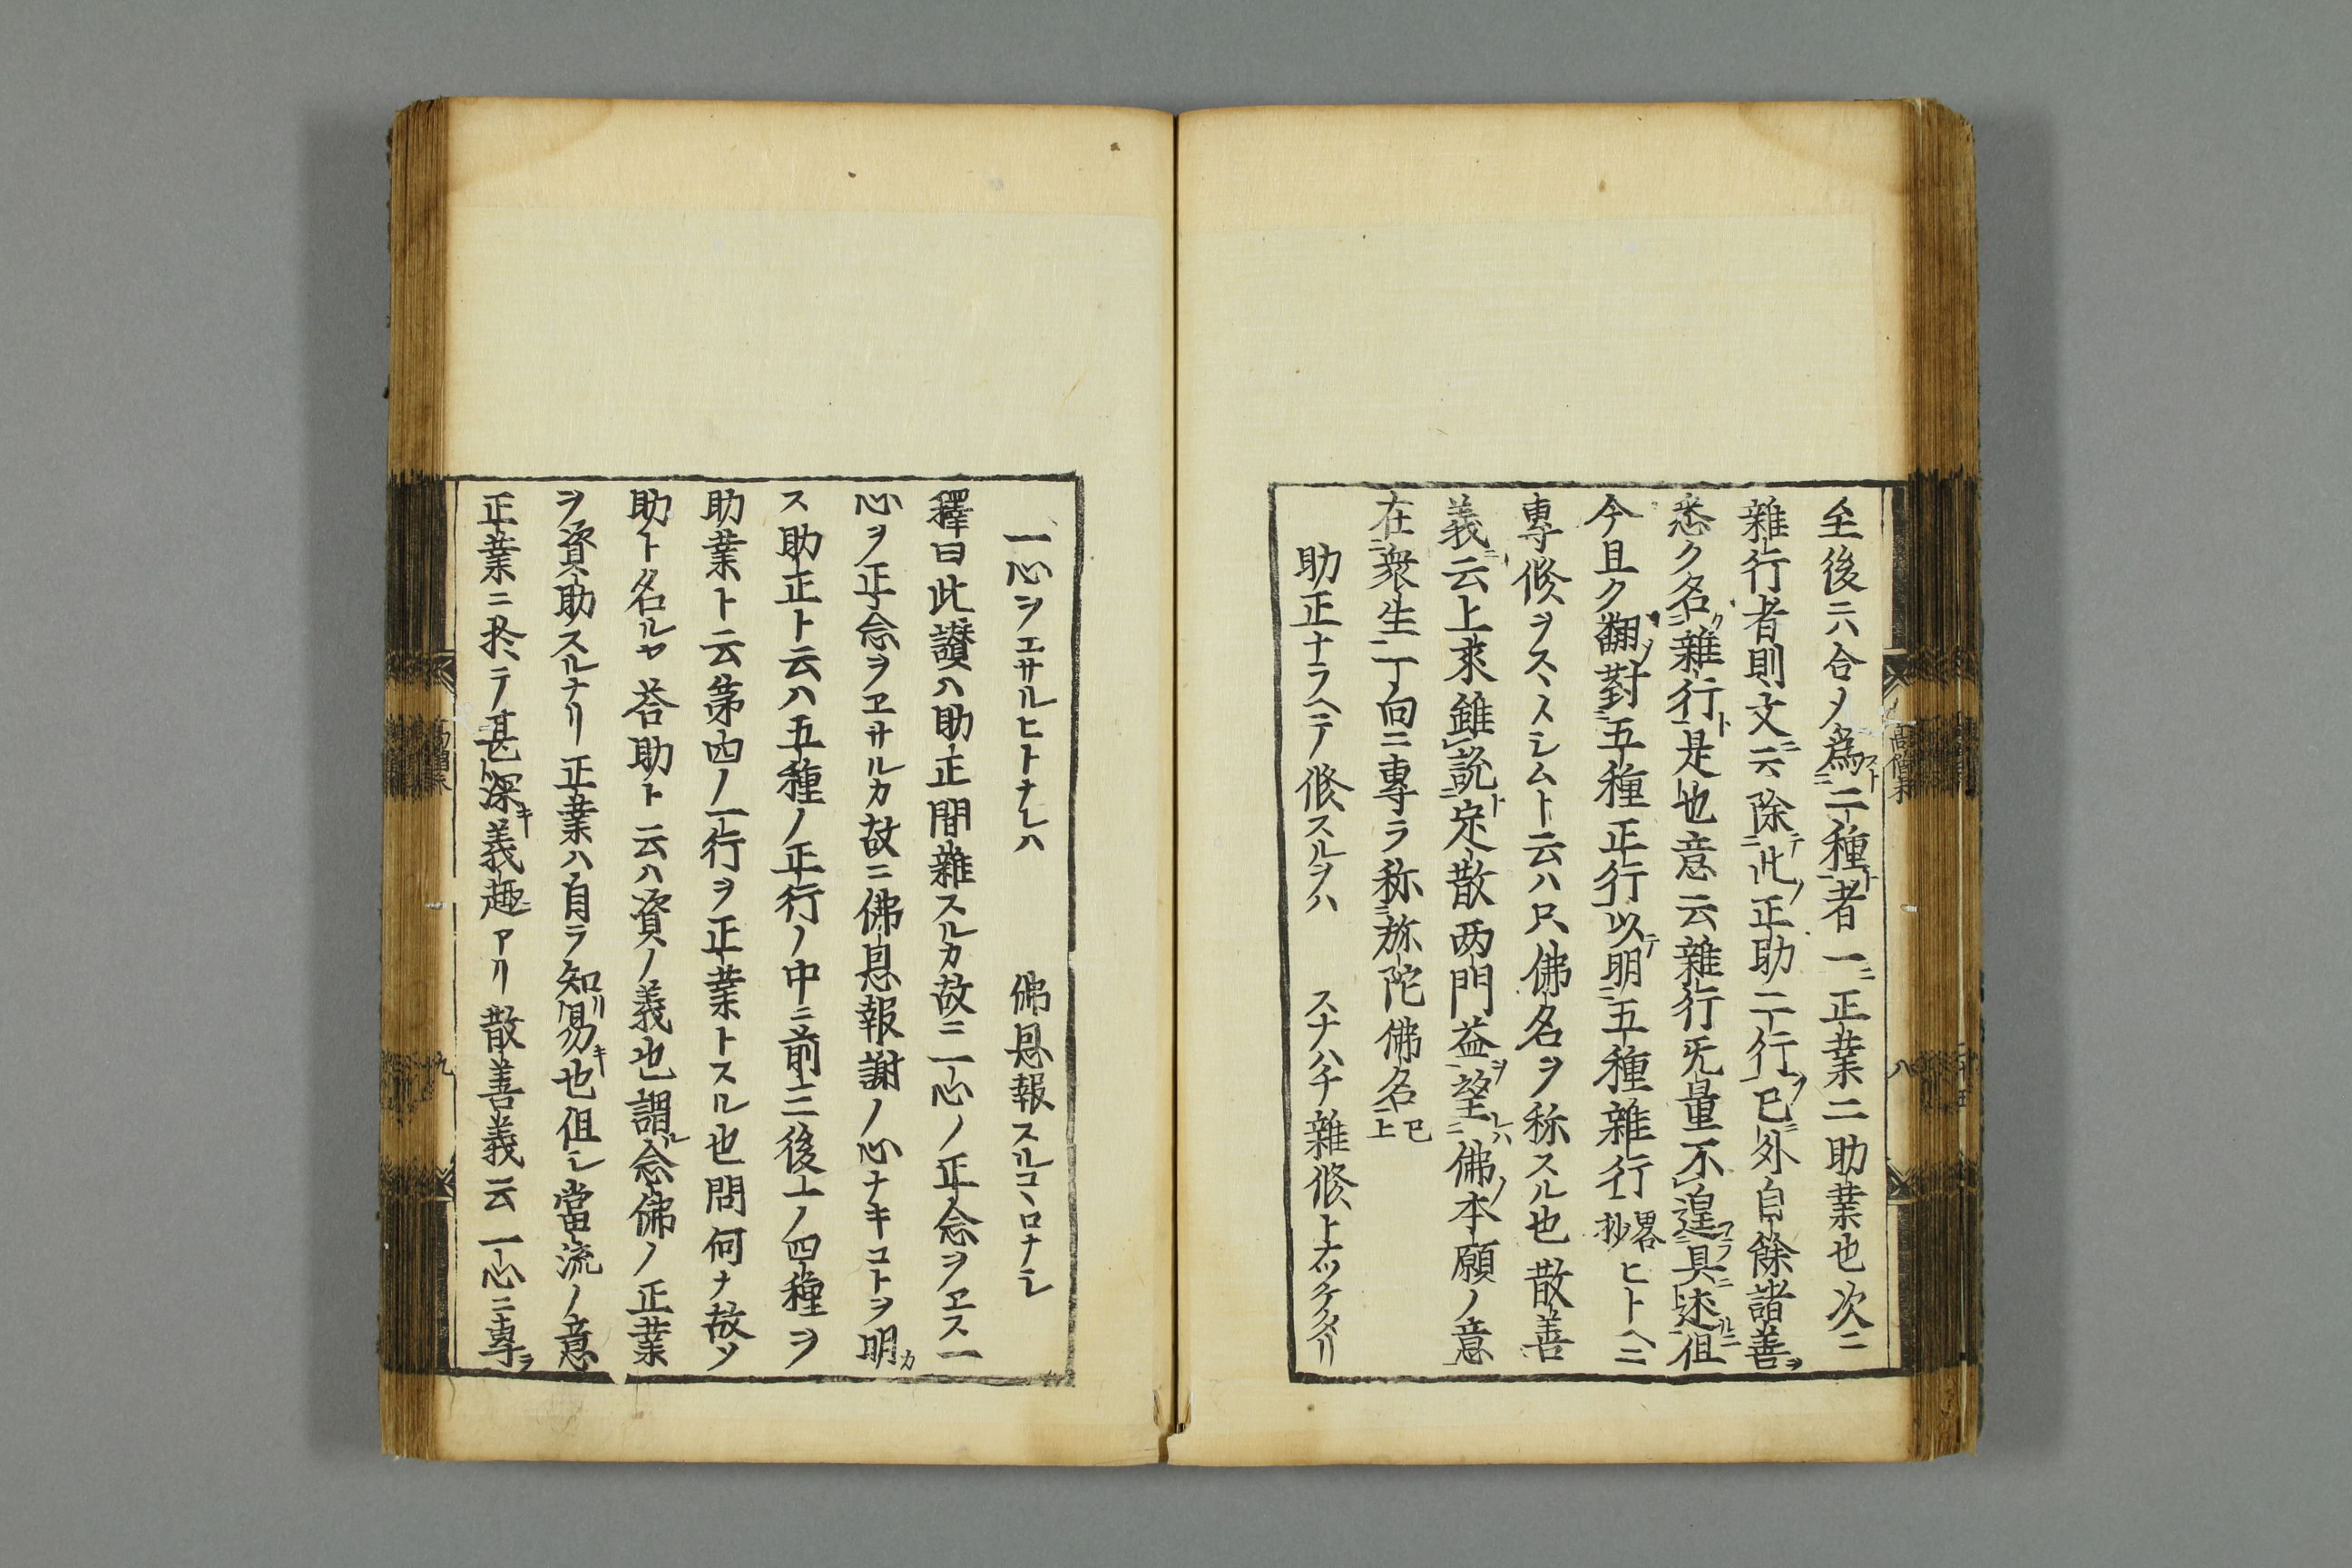 至後ニ六合ノ爲二種者一正業二助業也次ニ
雜行者則文云除此正助二行已外自餘諸善
悉ク名雜行是也意云雜行旡量不遑具述但
今且ク翻對五種正行以明五種雜行略抄ヒトヘニ
專修ヲスヽメシムト云ハ只佛名ヲ称スル也散善
義云上來雖說定散两門益望佛本願ノ意
在衆生一向ニ專ラ称弥陀佛名已上
助正ナラヘテ修スルヲハ スナハチ雜修トナツケタリ
一心ヲエサルヒトナレハ 佛恩報スルコヽロナシ
釋曰此讃ハ助正間雜スルカ故ニ一心ノ正念ヲヱス一
心ヲ正念ヲヱサルカ故ニ佛恩報謝ノ心ナキコトヲ明カ
ス助正ト云ハ五種ノ正行ノ中ニ前三後一ノ四種ヲ
助業ト云第四ノ一行ヲ正業トスル也問何ナ故ソ
助ト名ルヤ荅助ト云ハ資ノ義也謂ル念佛ノ正業
ヲ資助スルナリ正業ハ自ラ知リ易キ也但シ當流ノ意
正業ニ於テ甚深キ義趣アリ散善義云一心ニ專ラ